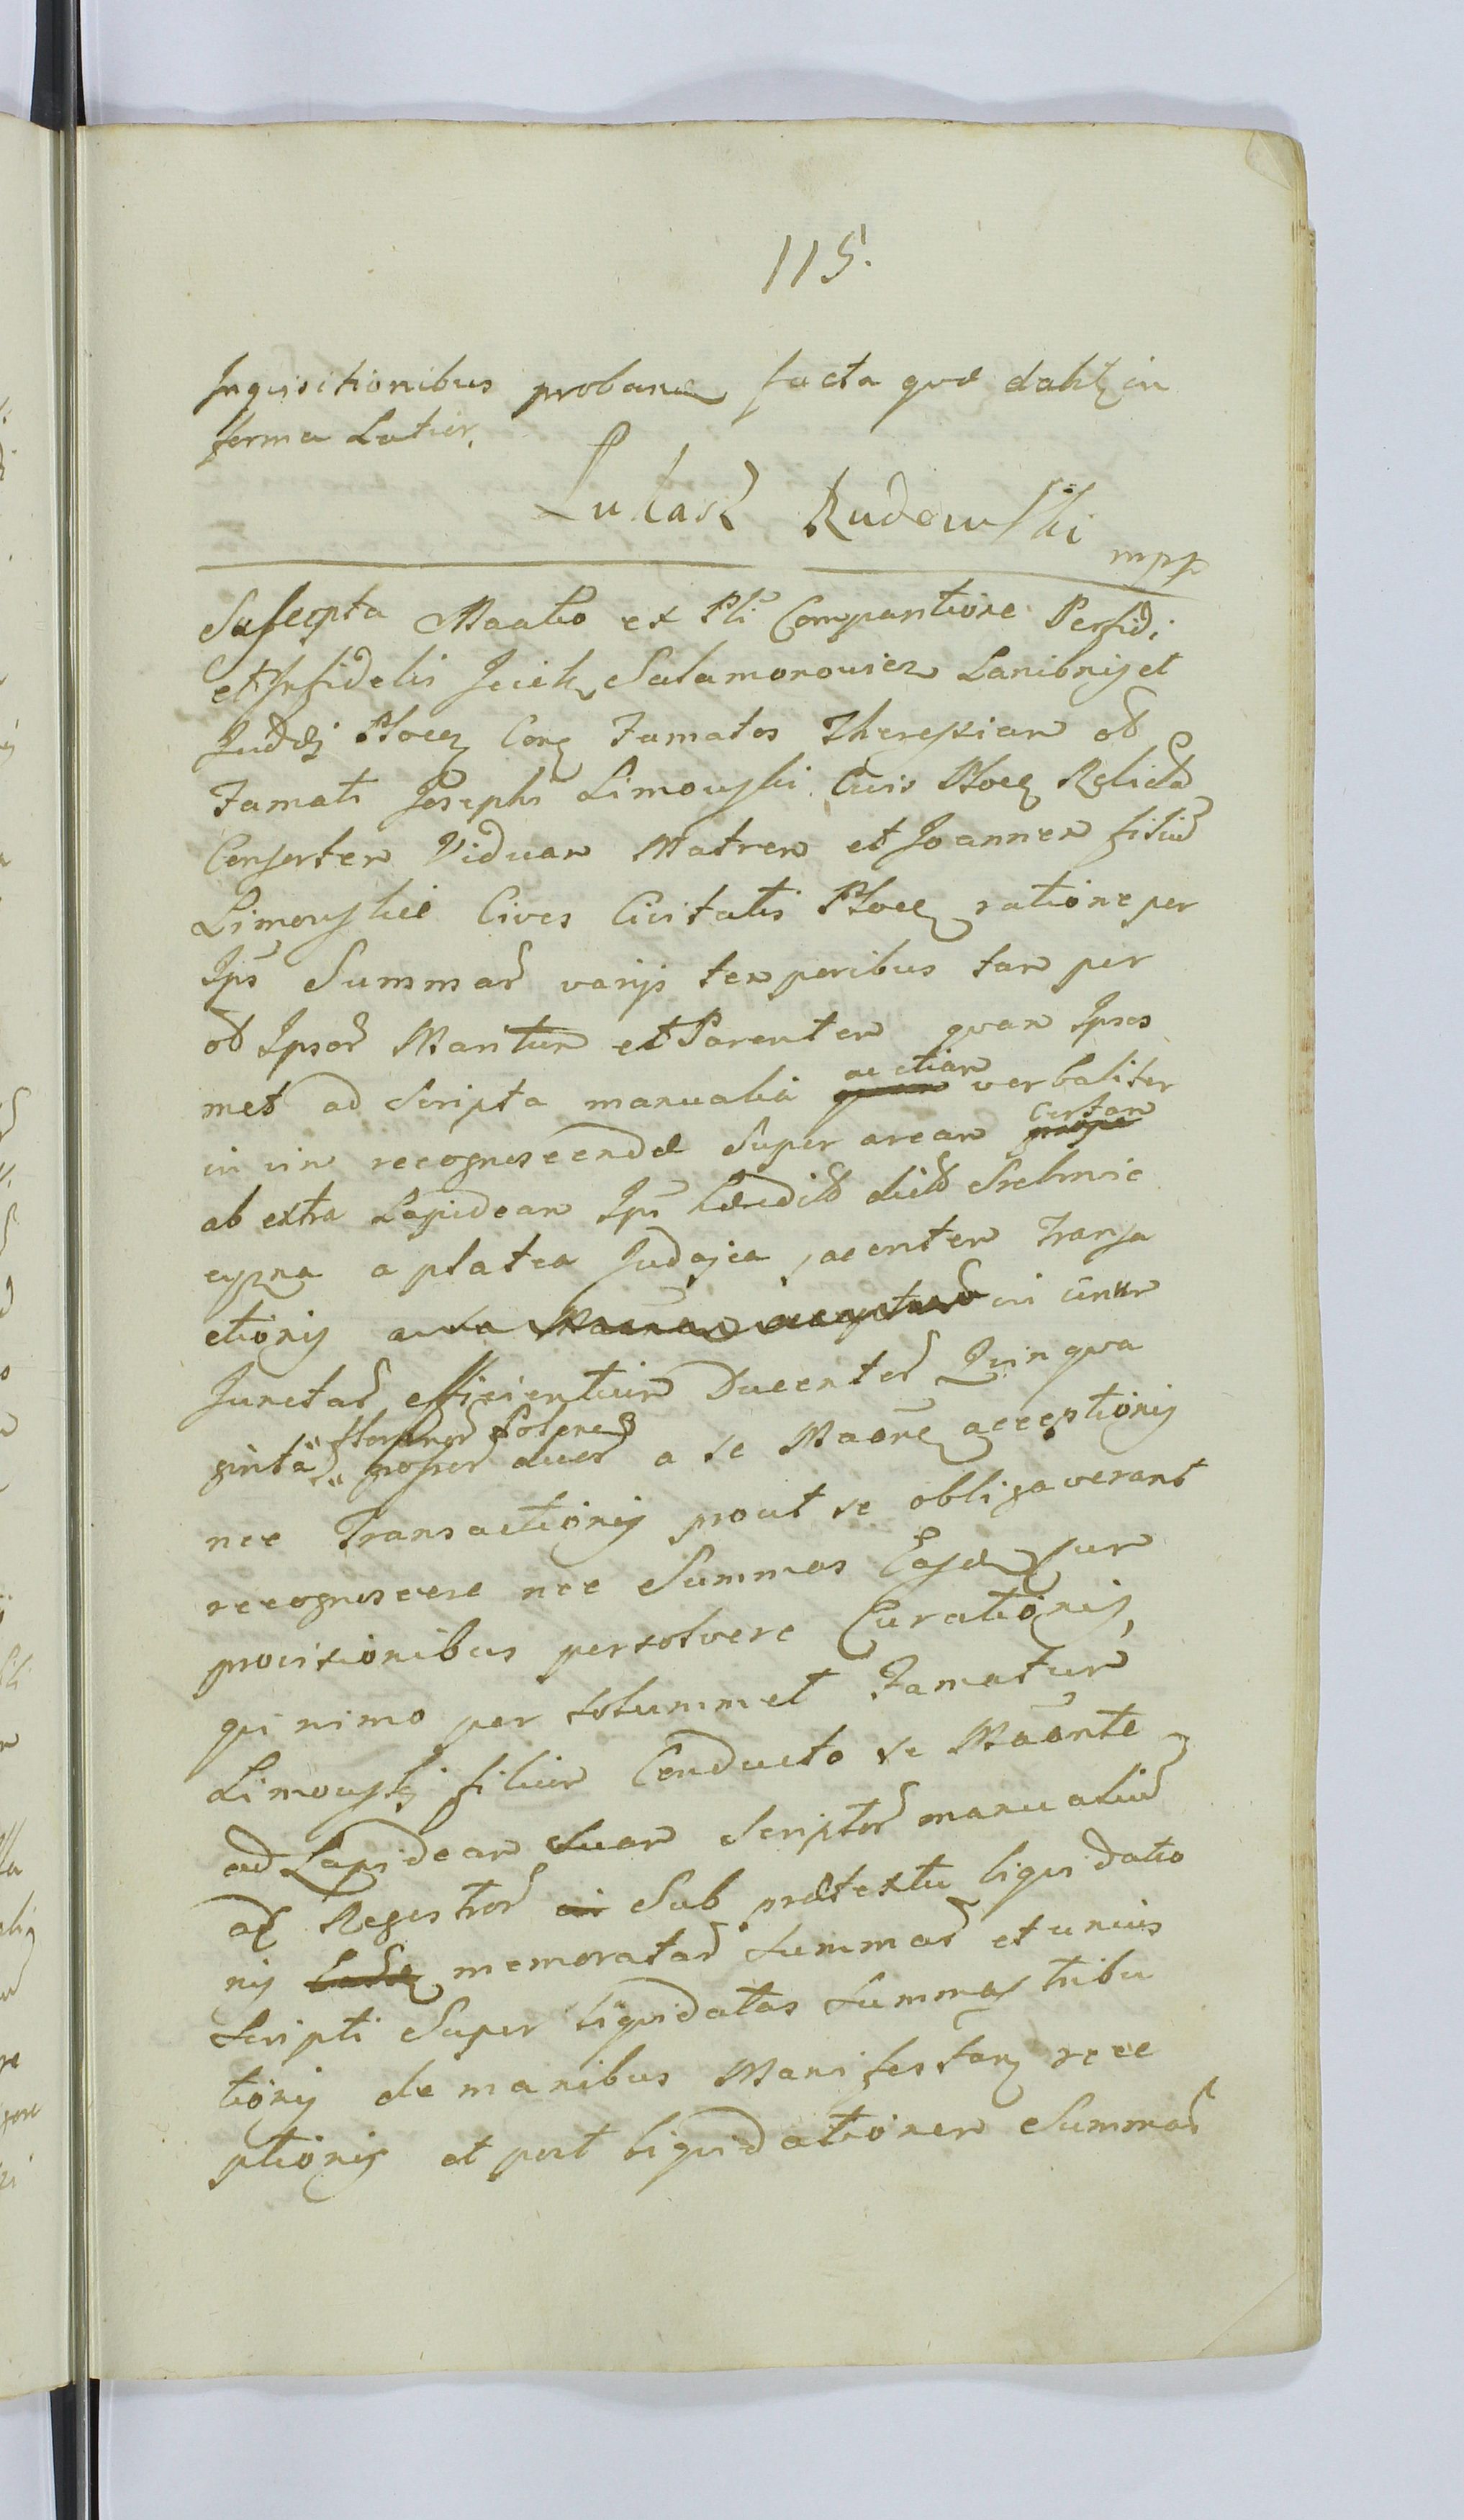 115.
Inquisitionibus probanda facta quæ dabt in
forma Latior.
Lukasz Rudowski mpp
Suscepta Maãtio ex Pli Comparitione Perfidi
et Infidelis Jcick Salamonowicz Lanionis et
Judæi Plocen Cora Famatos Theresiam olł
Famati Josephi Limowski Civis Plocen Relictã
Consortem Viduam Matrem et Joannem filiũ
Limowskie Cives Civitatis Plocen ratione per
Ips Summar varijs temporibus tam per
olł Ipsor Maritum et Parentem quam Ipsos
met ad Scripta manualia ac etiam verbaliter
in vim recognoscendæ Super aream certam
ab extra Lapideam Ips hæredit dict Srebrnic
cyzna a platea Judajca jacentem Transa
ctionis in unum
Junctar efficientium Ducentor Quinqua
ginta florenor Polonor a se Maõne acceptionis
nec Transactionis prout se obligaverant
recognoscere nec Summas Easdem cum
provisionibus persolvere Curationis,
qui nimo per solummet Famatum
Limowski filium Conducto se Maõnte
ad Lapideam Suam Scriptor manualiũ
ac Regestror Sub prætextu liquidatio
nis memoratar Summar et unius
Scripti Super liquidatas Summas tribu
tionis de manibus Manifestan rece
ptionis et post liquidationem Summar